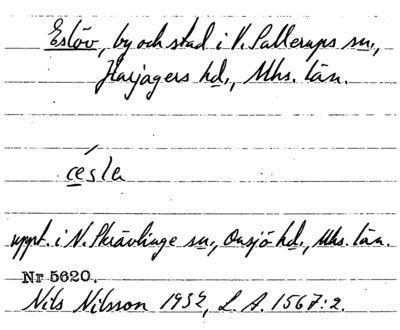 Eslöv, by och stad i V. Sallerups sn.,
Harjagers hd., Mhs. län.
uppt. i N. Skrävlinge sn., Onsjö hd., Mhs. län.
Nr 5620.
Nils Nilsson 1932, L. A. 1567:2.